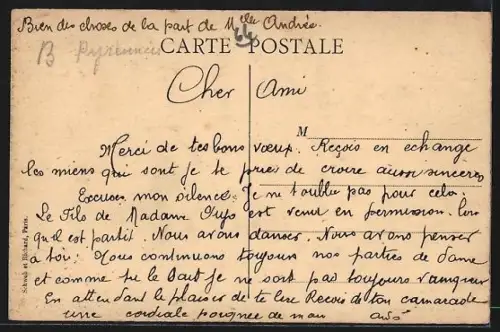 Bien des choses de la part de Mlle Andrée.
64
B Pyrénées
CARTE POSTALE
Cher Ami
M
Merci de tes bons vœux. Reçois en échange
les miens qui sont je te prie de croire aussi sincères
Excuses mon silence. Je ne t'oublie pas pour cela.
Le fils de Madame est venu en permission.
qu'il est partit. Nous avons danser. Nous avons penser
à toi. Nous continuons toujours nos parties de dame
et comme tu le sait je ne sort pas toujours vainqueur
En attendant le plaisir de te lire Reçois de ton camarade
une cordiale poignée de main
Schwob et Richard, Paris.